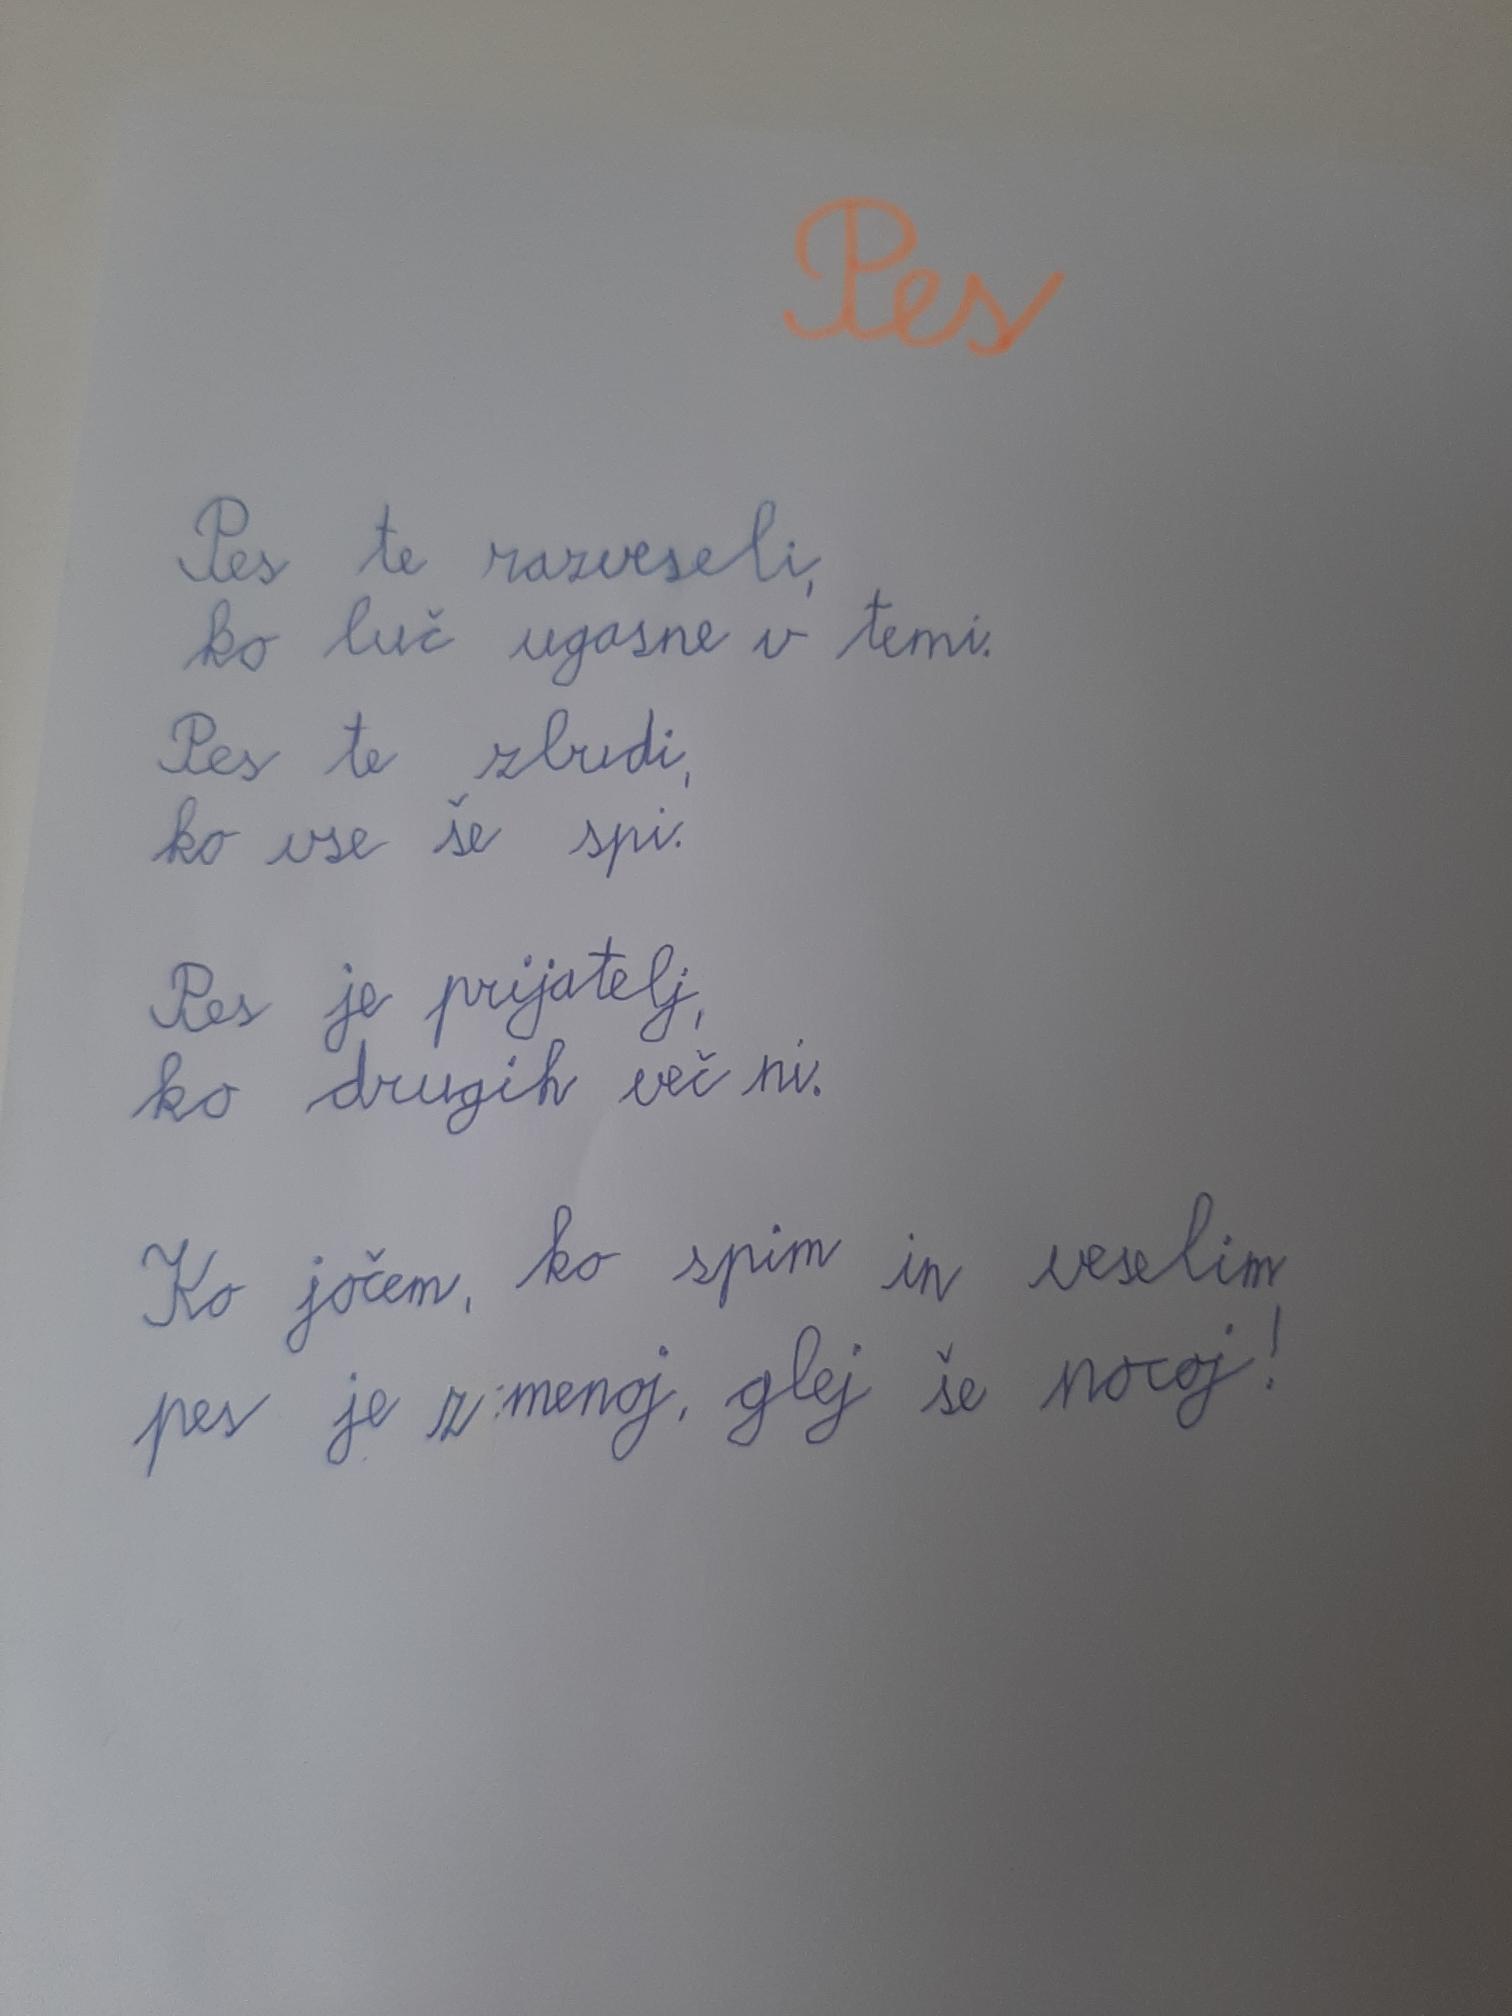 Pes
Pes te razveseli,
ko luč ugasne v temi.
Pes te zbudi,
ko vse še spi.
Pes je prijatelj,
ko drugih več ni.
Ko jočem, ko spim in veselim
pes je z menoj, glej še nocoj!